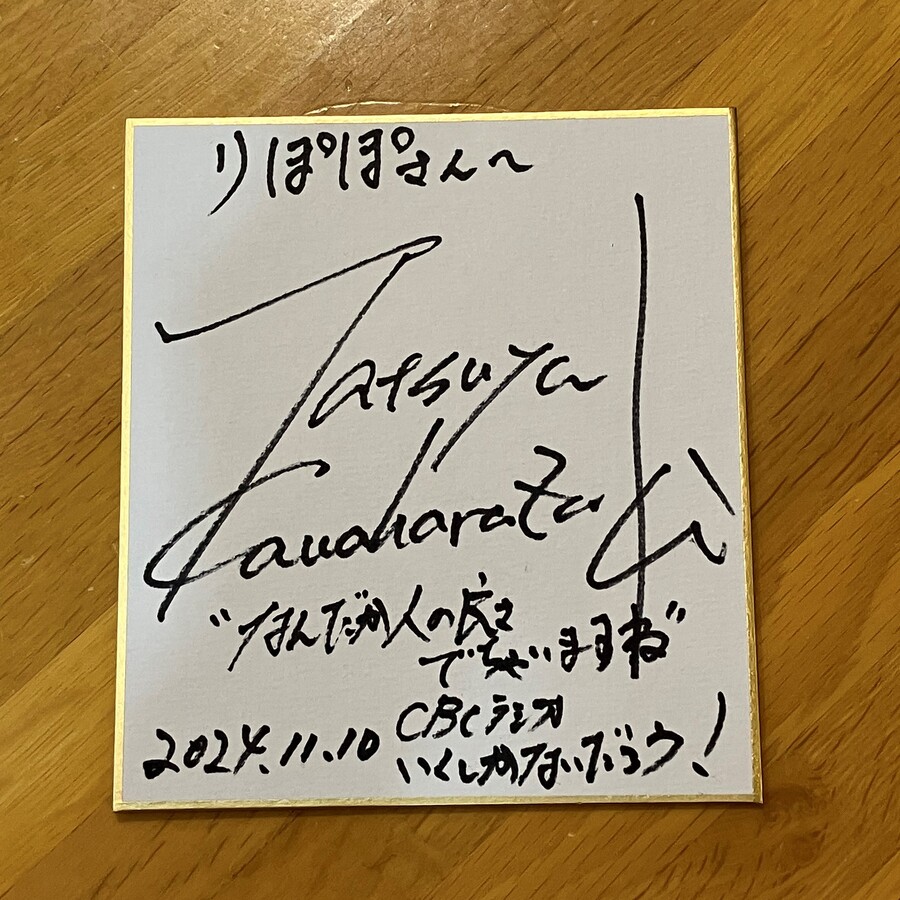 りぽぽさんへ
Tatsuya
Kawaharazaki
"なんだか人の良さ
でちゃいますね"
2024.11.10
CBCラジオ
いくしかないだろう!